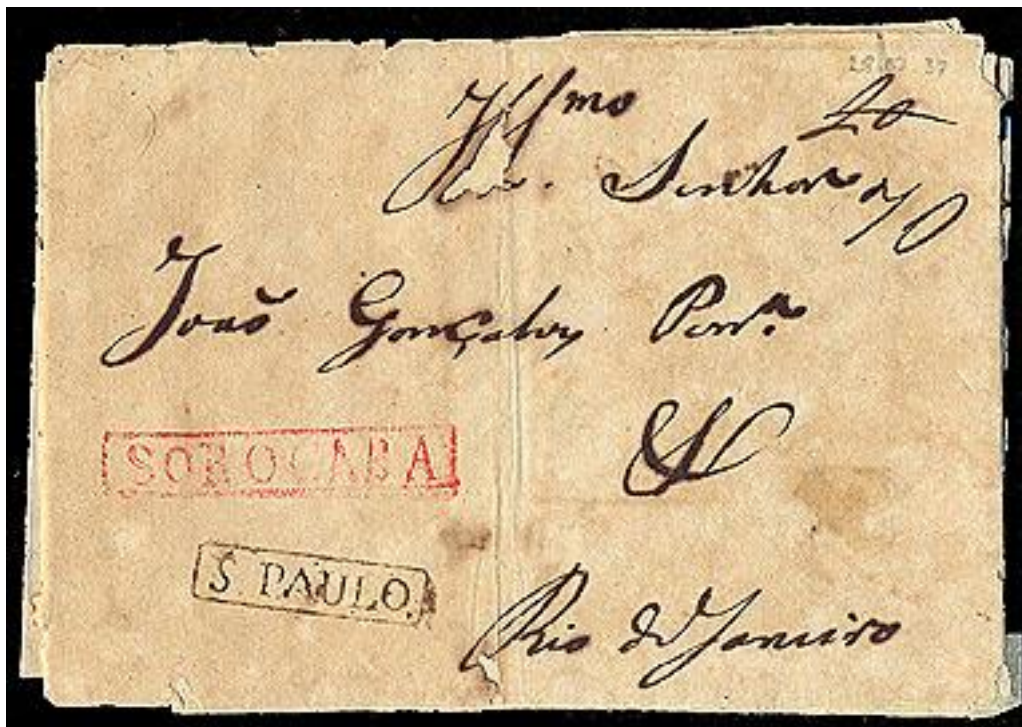 Illmo
Senhor
João Gonçalves
SOROCABA
S. PAULO.
Rio de Janeiro